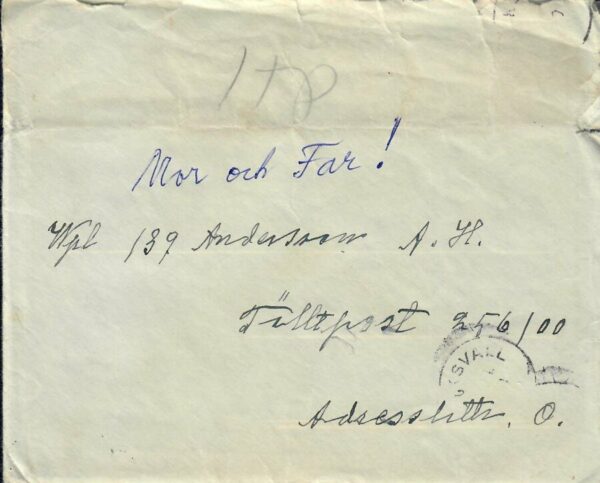 Mor och Far!
Vpl 139 Andersson A. H.
Fältpost 256/00
Adresslitt. O.